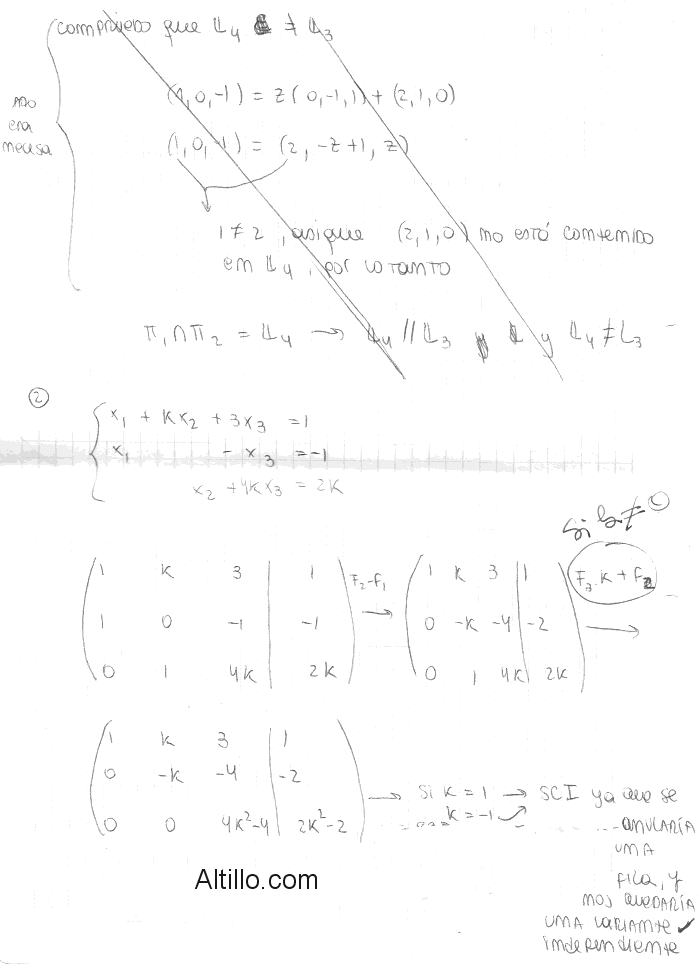 compruebo que L₄ ≠ L₃
no
era
necesa
(1,0,-1) = z(0,-1,1) + (2,1,0)
(1,0,-1) = (2, -z+1, z)
1 ≠ 2, asi que (2,1,0) no está contenido
en L₄, por lo tanto
π₁∩π₂ = L₄ → L₄ // L₃ y L₄ ≠ L₃
②
x₁ + kx₂ + 3x₃ = 1
x₁ - x₃ = -1
x₂ + 4kx₃ = 2k
si k ≠ 0
1 k 3 | 1 F₂-F₁ 1 k 3 | 1 F₃.k + F₂
1 0 -1 | -1 → 0 -k -4 | -2 →
0 1 4k | 2k 0 1 4k | 2k
1 k 3 | 1
0 -k -4 | -2
0 0 4k²-4 | 2k²-2
→ Si k = 1 → SCI ya que se
k = -1 anularía
una
fila, y
nos quedaría
una variante ✓
independiente
Altillo.com